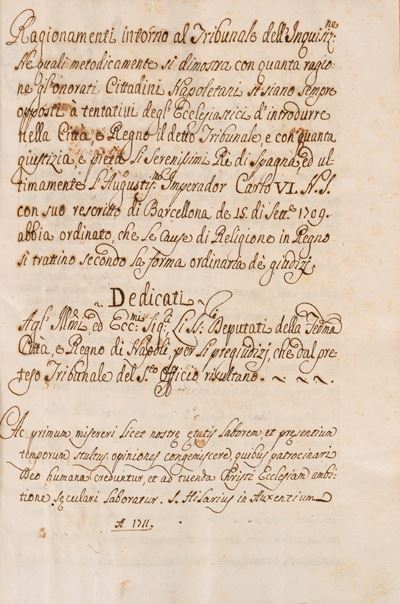 Ragionamenti intorno al Tribunale dell'Inquisiz.ne
Ne quali metodicamente si dimostra con quanta ragio-
ne gl'onorati Cittadini Napoletani si siano sempre
opposti à tentativi degl'Ecclesiastici d'introdurre
nella Città, e Regno il detto Tribunale, e con quanta
giustizia, e pietà li Serenissimi Rè di Spagna, ed ul-
timamente l'Augustiss.mo Imperador Carlo VI. N.S.
con suo rescritto di Barcellona de 15. di Sett.e 1709.
abbia ordinato, che le Cause di Religione in Regno
si trattino secondo la forma ordinaria de giudizj
Dedicati
Agl'Ill.mi, ed Ecc.mi Sig.ri li SS. Deputati della Fedma
Città, e Regno di Napoli, per li pregiudizj, che dal pre-
teso Tribunale del S.to Officio risultano.
Ac primum misereri licet nostre etatis laborem et presentium
temporum stultas opiniones congemiscere, quibus patrocinari
Deo humana creduntur, et ad tuenda Christi Ecclesiam ambi-
tione seculari laboratur. S. Hilarius in Auxentium
A 1711.